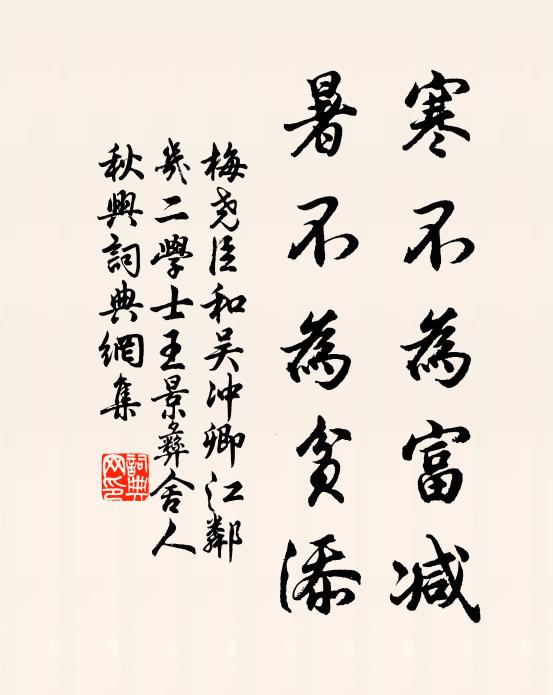 寒不為富减
暑不為貧添
梅尧臣和吴冲卿江鄰
幾二學士王景彝舍人
秋興詞典網集
詞典
网印